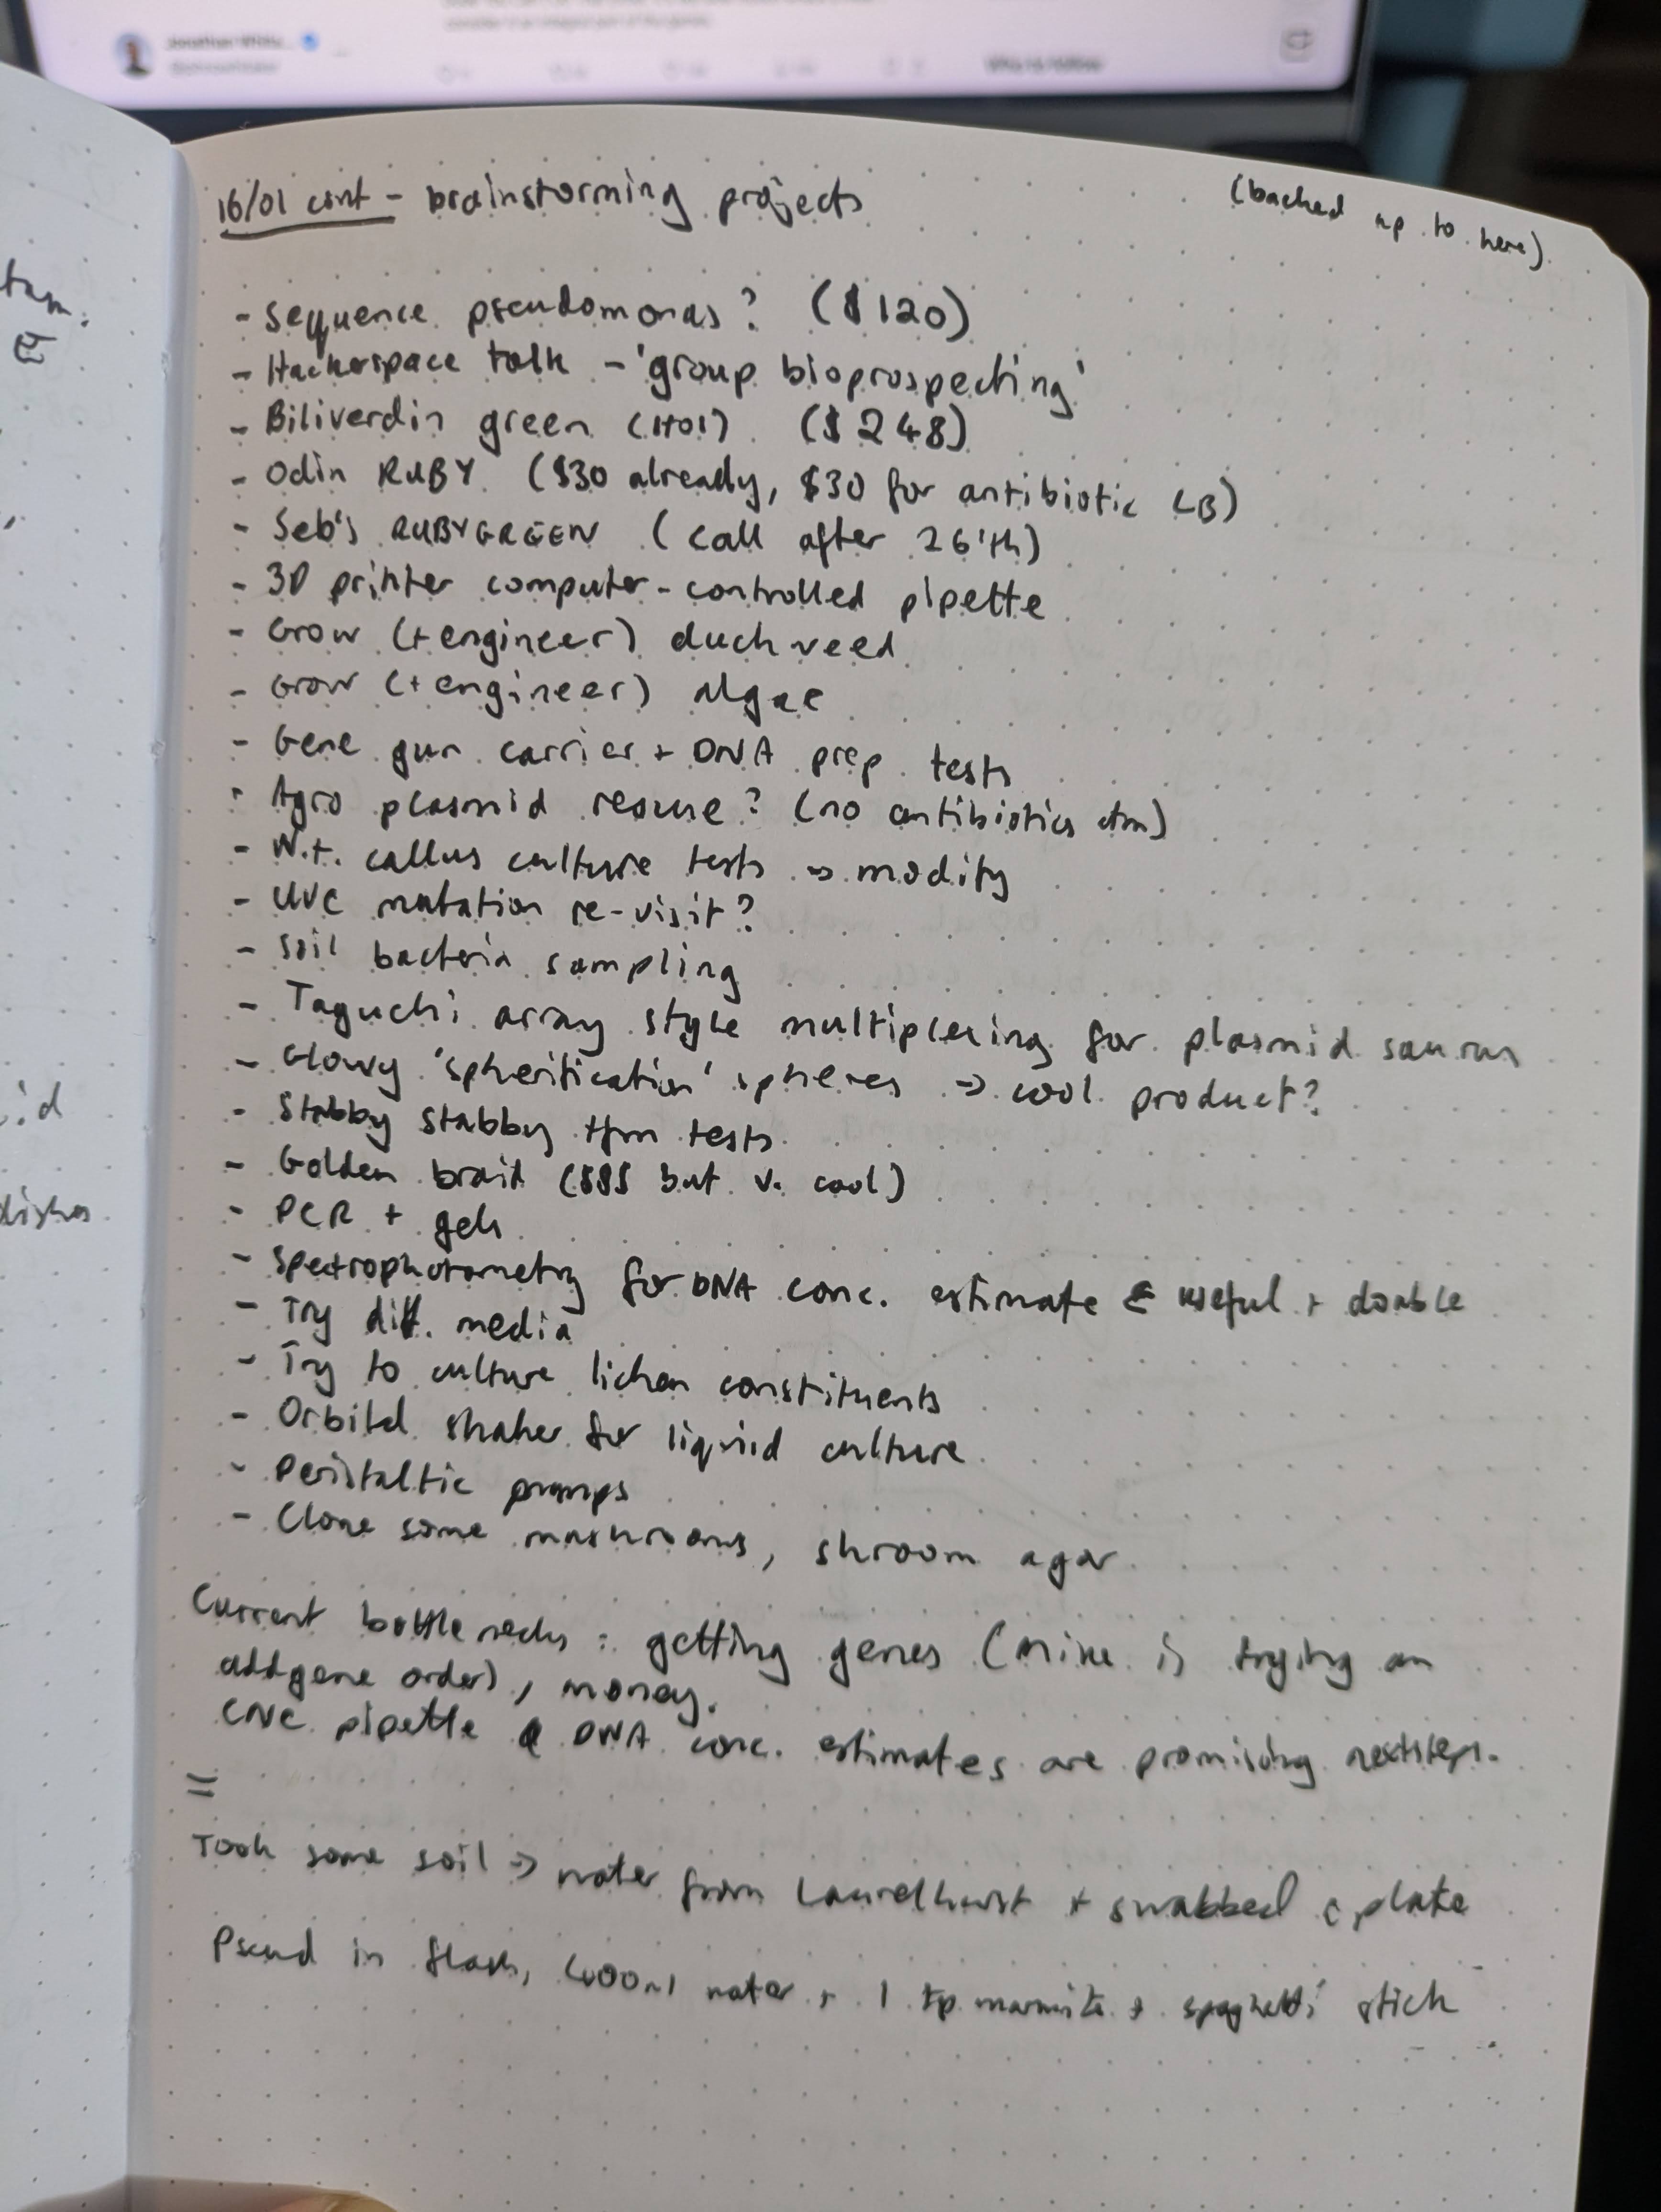 16/01 cont - brainstorming projects
(backed up to here)
- Sequence pseudomonas? ($120)
- Hackerspace talk - 'group bioprospecting'
- Biliverdin green (HO1) ($248)
- Odin RUBY ($30 already, $30 for antibiotic LB)
- Seb's RUBYGREEN (call after 26'th)
- 3D printer computer-controlled pipette
- Grow (+ engineer) duckweed
- Grow (+ engineer) algae
- Gene gun carrier + DNA prep tests
- Agro plasmid rescue? (no antibiotics atm)
- W.t. callus culture tests → modify
- UVC mutation re-visit?
- Soil bacteria sampling
- Taguchi array style multiplexing for plasmid saurus
- Glowy 'spherification' spheres → cool product?
- Stabby stabby tfm tests
- Golden braid ($$$ but v. cool)
- PCR + gels
- Spectrophotometry for DNA conc. estimate ← useful + doable
- Try diff. media
- Try to culture lichen constituents
- Orbital shaker for liquid culture
- Peristaltic pumps
- Clone some mushrooms, shroom agar
Current bottlenecks: getting genes (Mike is trying an
addgene order), money.
CNC pipette & DNA conc. estimates are promising nextsteps.
=
Took some soil → water from Laurelhurst + swabbed a plate
Pseud in flask, 400ml water + 1 tsp marmite + spaghetti stick
tum.
id
dishes